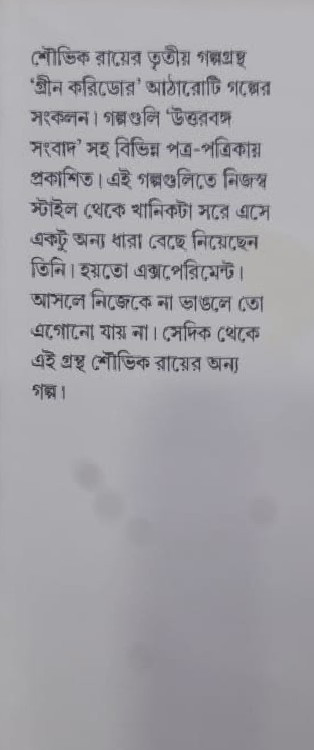 শৌভিক রায়ের তৃতীয় গল্পগ্রন্থ
'গ্রীন করিডোর' আঠারোটি গল্পের
সংকলন। গল্পগুলি 'উত্তরবঙ্গ
সংবাদ' সহ বিভিন্ন পত্র-পত্রিকায়
প্রকাশিত। এই গল্পগুলিতে নিজস্ব
স্টাইল থেকে খানিকটা সরে এসে
একটু অন্য ধারা বেছে নিয়েছেন
তিনি। হয়তো এক্সপেরিমেন্ট।
আসলে নিজেকে না ভাঙলে তো
এগোনো যায় না। সেদিক থেকে
এই গ্রন্থ শৌভিক রায়ের অন্য
গল্প।